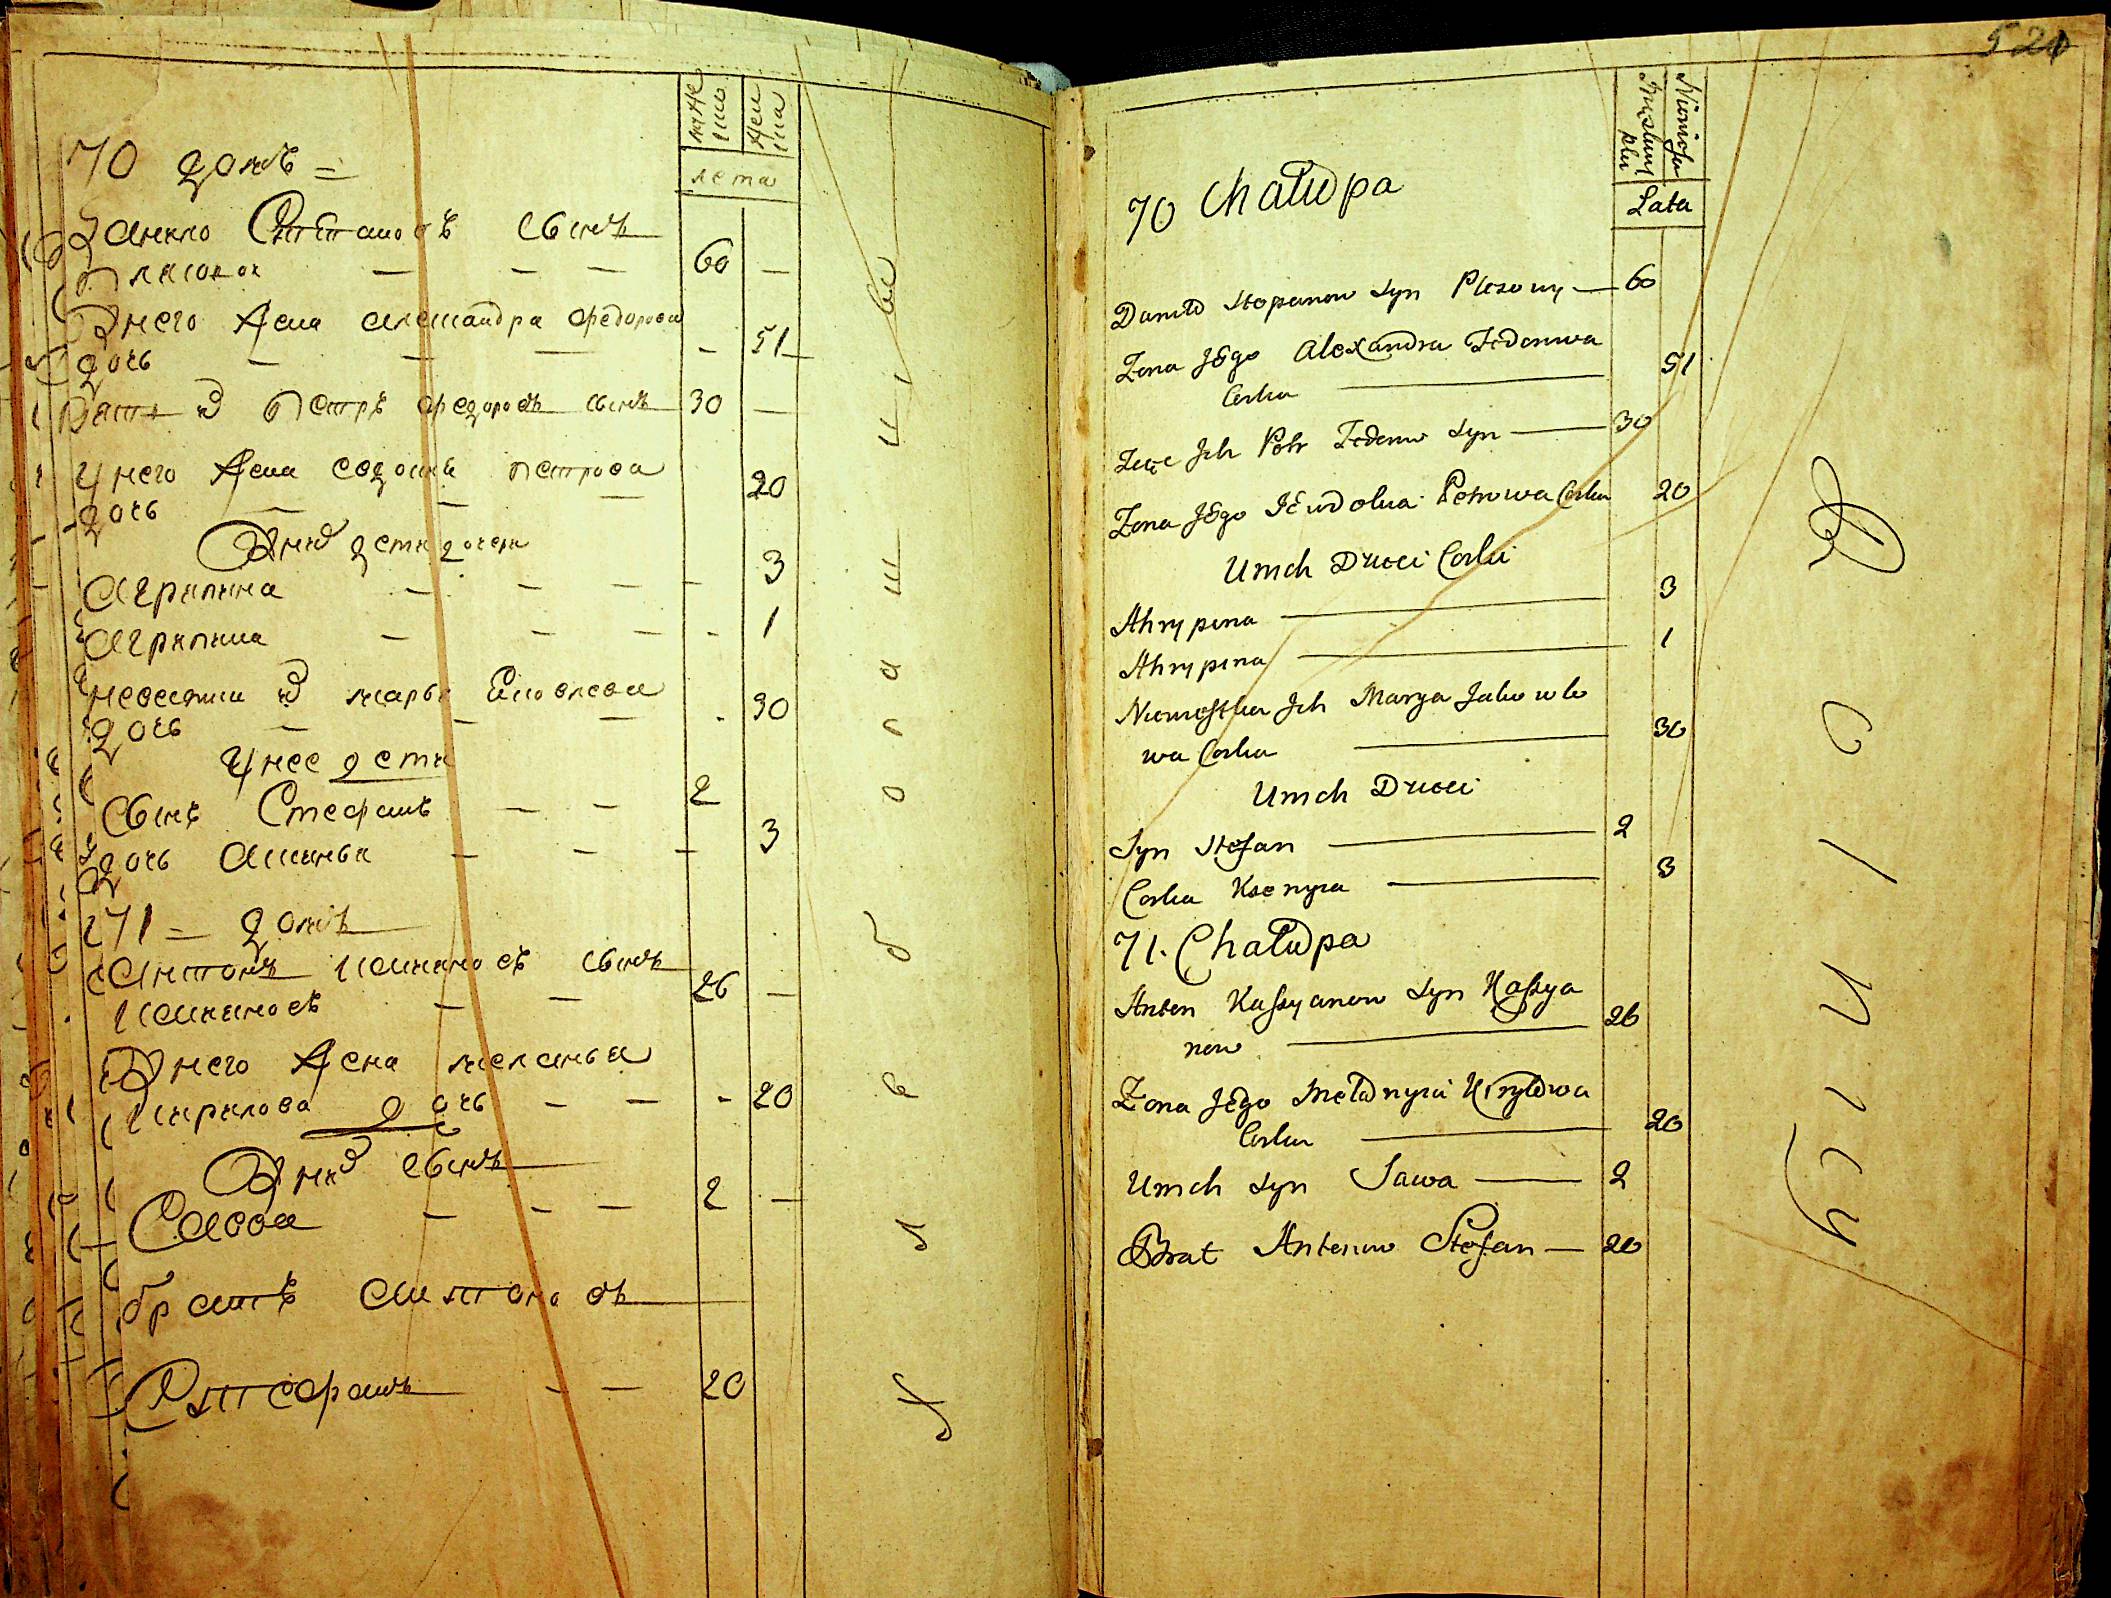 70 домъ
муже
ска
жен
ска
лета
Данило Степановъ сынъ
60
Внего жена александра федорова
дочь
51
Зять их Петръ федоровъ сынъ 30
Унего жена Евдокия петрова
дочь
20
Уних дети дочери
Агрипина
3
Агрипина
1
невестка их марья Яковлева
дочь
30
Унее дети
Сынъ Стефанъ
2
дочь Аксинья
3
71 домъ
Антонъ Касияновъ сынъ
Касияновъ
26
Унего жена меланья
Кирилова дочь
20
Уних сынъ
Савва
2
братъ Антоновъ
Стефанъ
20
521
70 Chałupa
Lata
Daniło Stepanow Syn Plesowy 60
Zona Jego Alexandra Fedorowa
Corka
51
Zięc Jch Petr Fedorow Syn 30
Zona Jego Jewdokia Petrowa Corka 20
Unich Dzieci Corki
Ahrypina
3
Ahrypina
1
Niewestka Jch Marya Jakowle
wa Corka
30
Unich Dzieci
Syn Stefan
2
Corka Ksenyia
3
71. Chałupa
Anton Kassyanow Syn Kassya
now
26
Zona Jego Mełanyia Kiryłowa
Corka
20
Unich Syn Sawa 2
Brat Antonow Stefan 20
Rolnicy